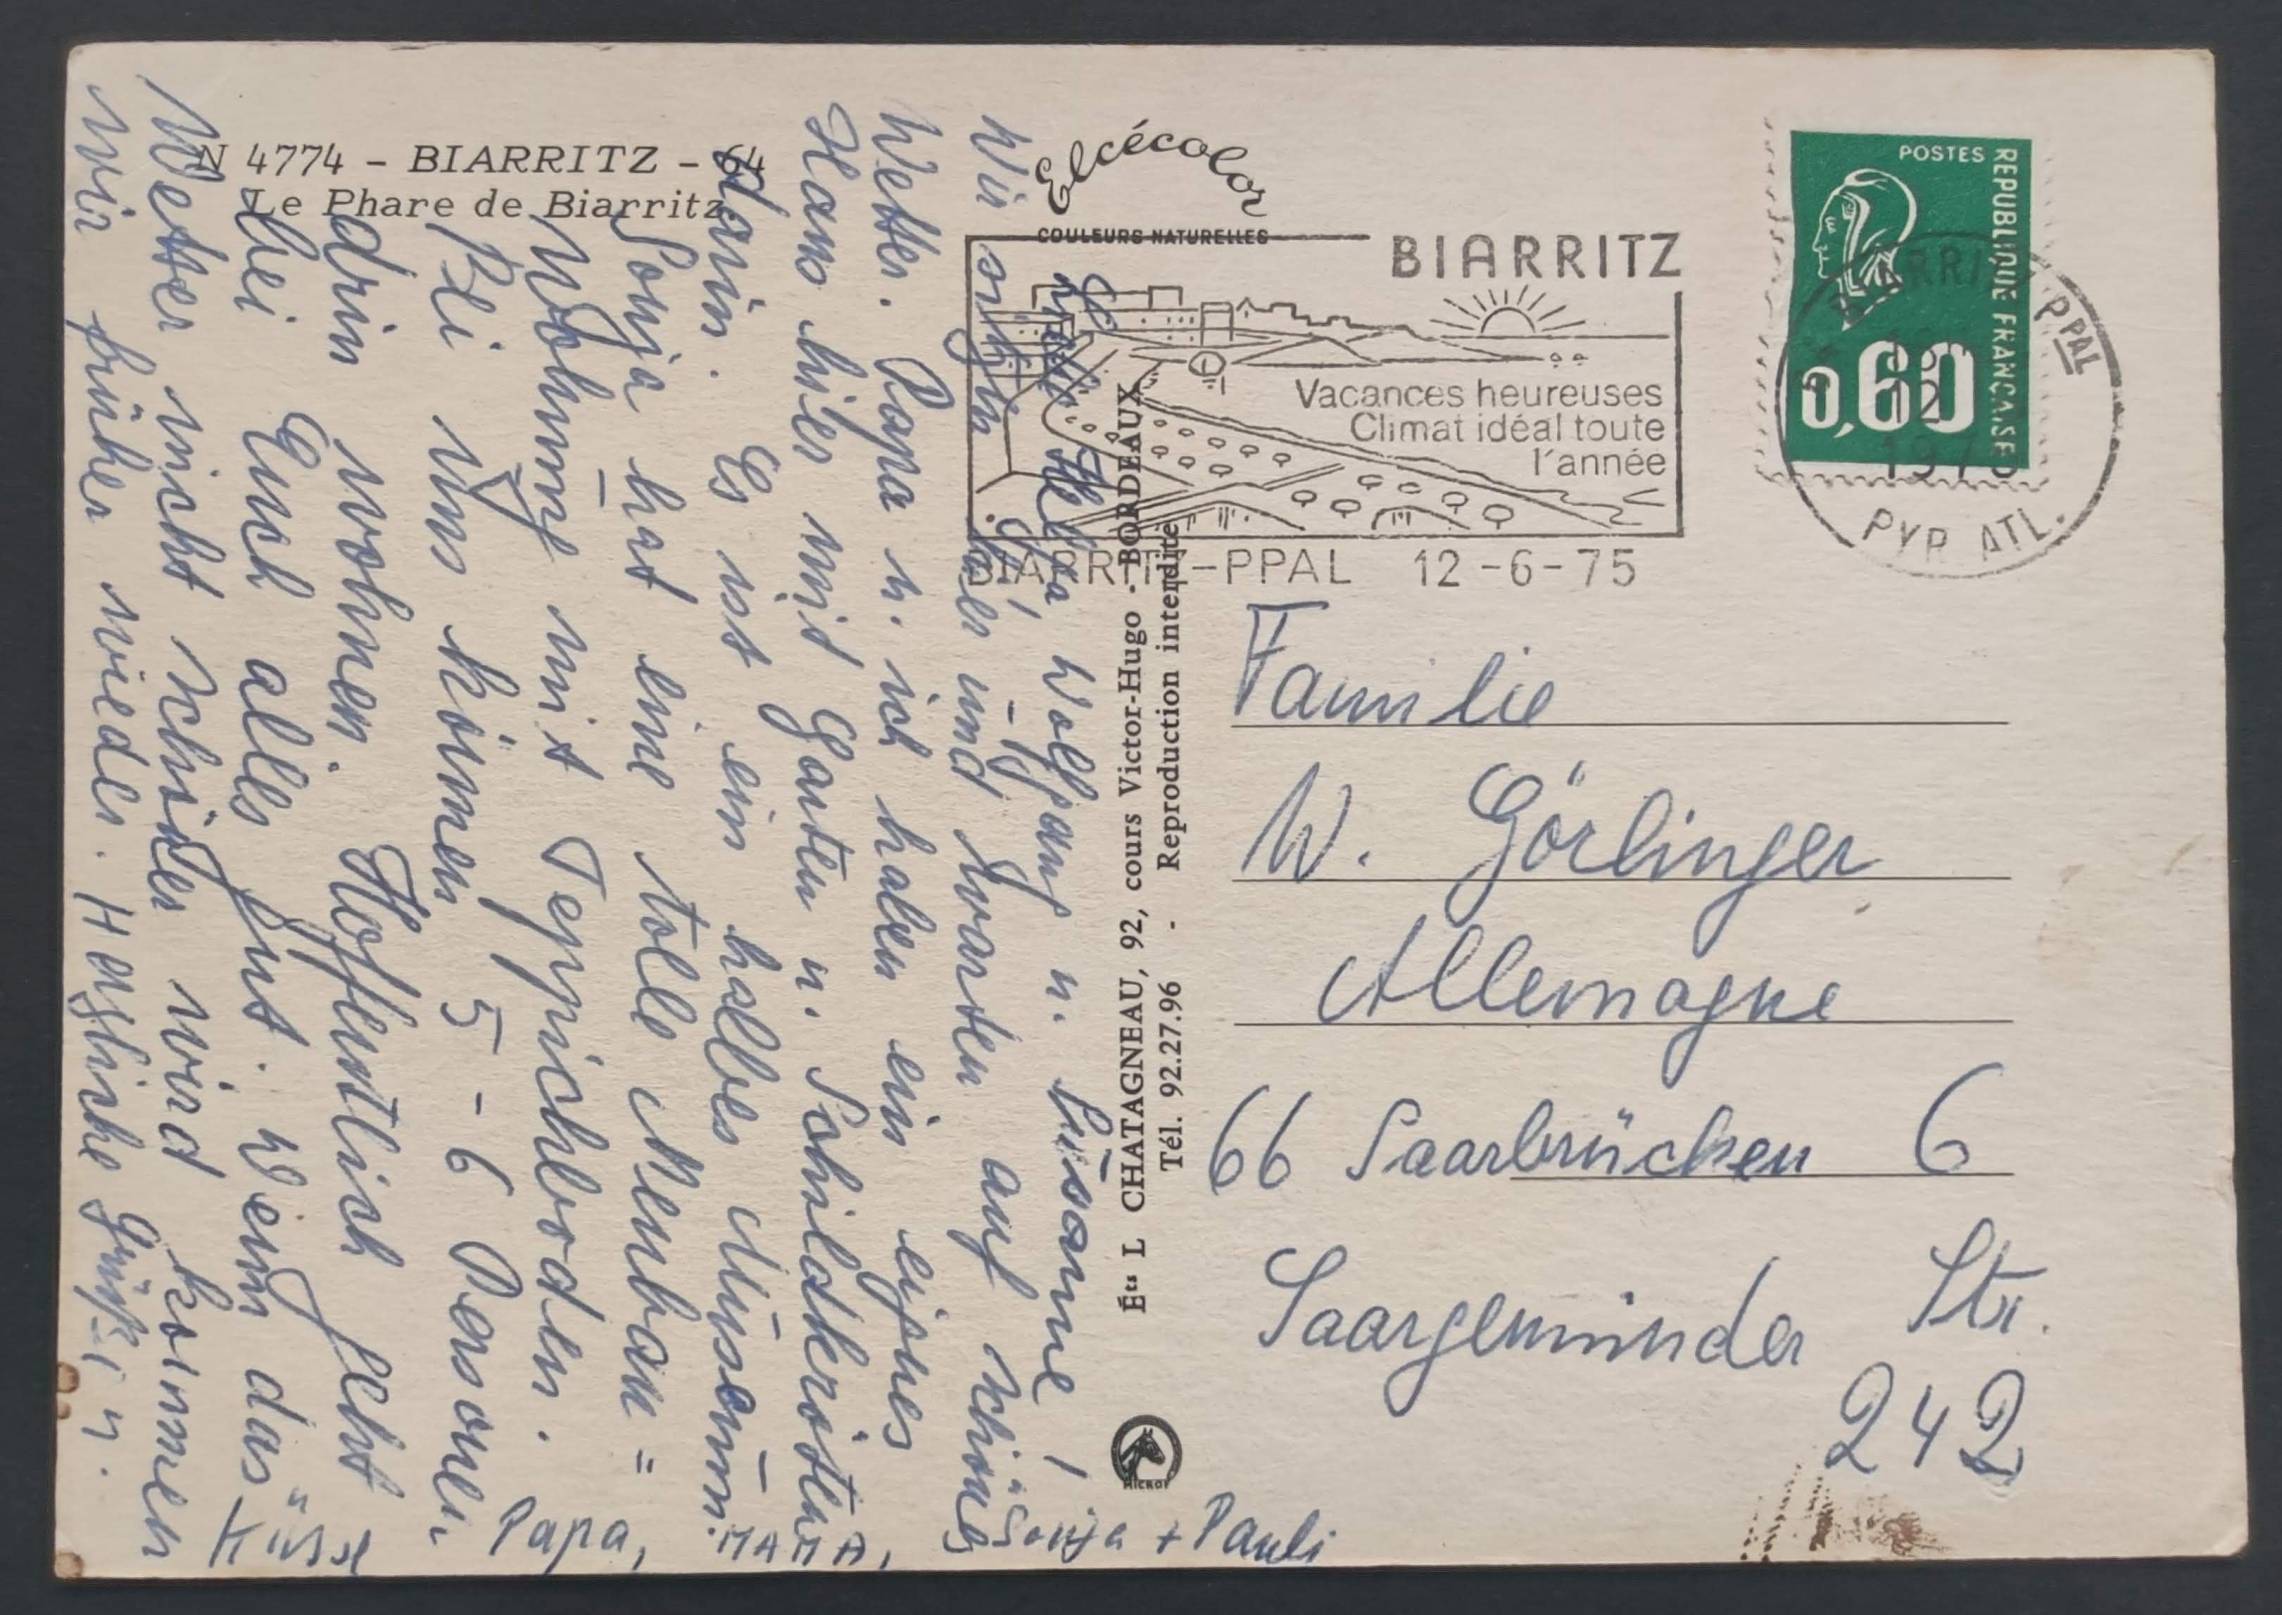 N 4774 - BIARRITZ - 64
Le Phare de Biarritz
Elcécolor
COULEURS NATURELLES
BIARRITZ
Vacances heureuses
Climat idéal toute
l'année
BIARRITZ-PPAL 12-6-75
POSTES
REPUBLIQUE FRANÇAISE
0,60
BIARRITZ PPAL
12
PYR ATL.
Éts L CHATAGNEAU, 92, cours Victor-Hugo - BORDEAUX
Tél. 92.27.96 - Reproduction interdite
Helga, Wolfgang u. Susanne!
Wir sitzen hier und warten auf schönes
Wetter. Papa u. ich haben ein eignes
Haus hier mit Garten u. Schildkröten
darin. Es ist ein halbes Museum.
Sonja hat eine tolle Neubau=
Wohnung mit Teppichboden.
Bei uns können 5-6 Personen
drin wohnen. Hoffentlich geht
bei Euch alles gut. Wenn das
Wetter nicht schöner wird kommen
wir früher wieder. Herzliche Grüße u.
Küsse Papa, MAMA, Sonja + Pauli
Familie
W. Görlinger
Allemagne
66 Saarbrücken 6
Saargemünder Str.
242